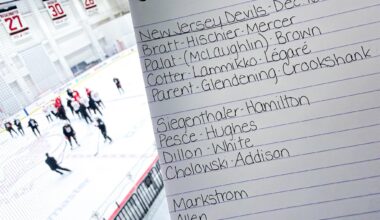 27
30
New Jersey Devils · Dec
Bratt·Hischier·Mercer
Palat·(McLaughlin)·Brown
Cotter·Lammikko·Légaré
Parent·Glendening, Crookshank
Siegenthaler·Hamilton
Pesce·Hughes
Dillon·White
Cholowski·Addison
Markstrom
Allen